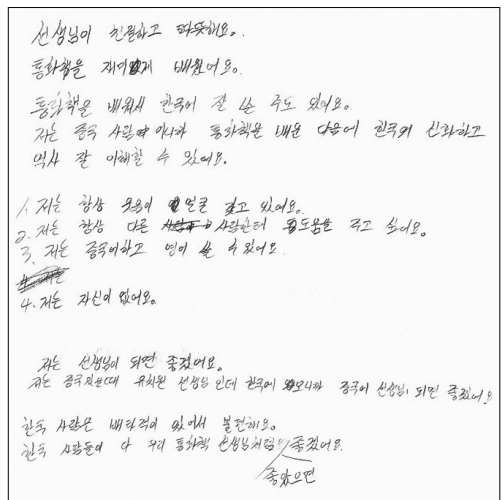 선생님이 친절하고 따뜻해요.
통화책을 재미있게 배웠어요.
통화책을 배워서 한국어 잘 쓸 수도 있어요.
저는 중국 사람이니까 통화책을 배운 다음에 한국의 신화하고
역사 잘 이해할 수 있어요.
1. 저는 항상 웃음이 얼굴 갖고 있어요.
2. 저는 항상 다른 사람한테 도움을 주고 싶어요.
3. 저는 중국어하고 영어 쓸 수 있어요.
4. 저는 자신이 없어요.
저는 선생님이 되면 좋겠어요.
저는 중국있을때 유치원 선생님 인데 한국에 오니까 중국어 선생님 되면 좋겠어요
한국 사람은 배타적이 있어서 불편해요.
한국 사람들이 다 우리 통화책 선생님처럼 좋겠어요.
좋았으면